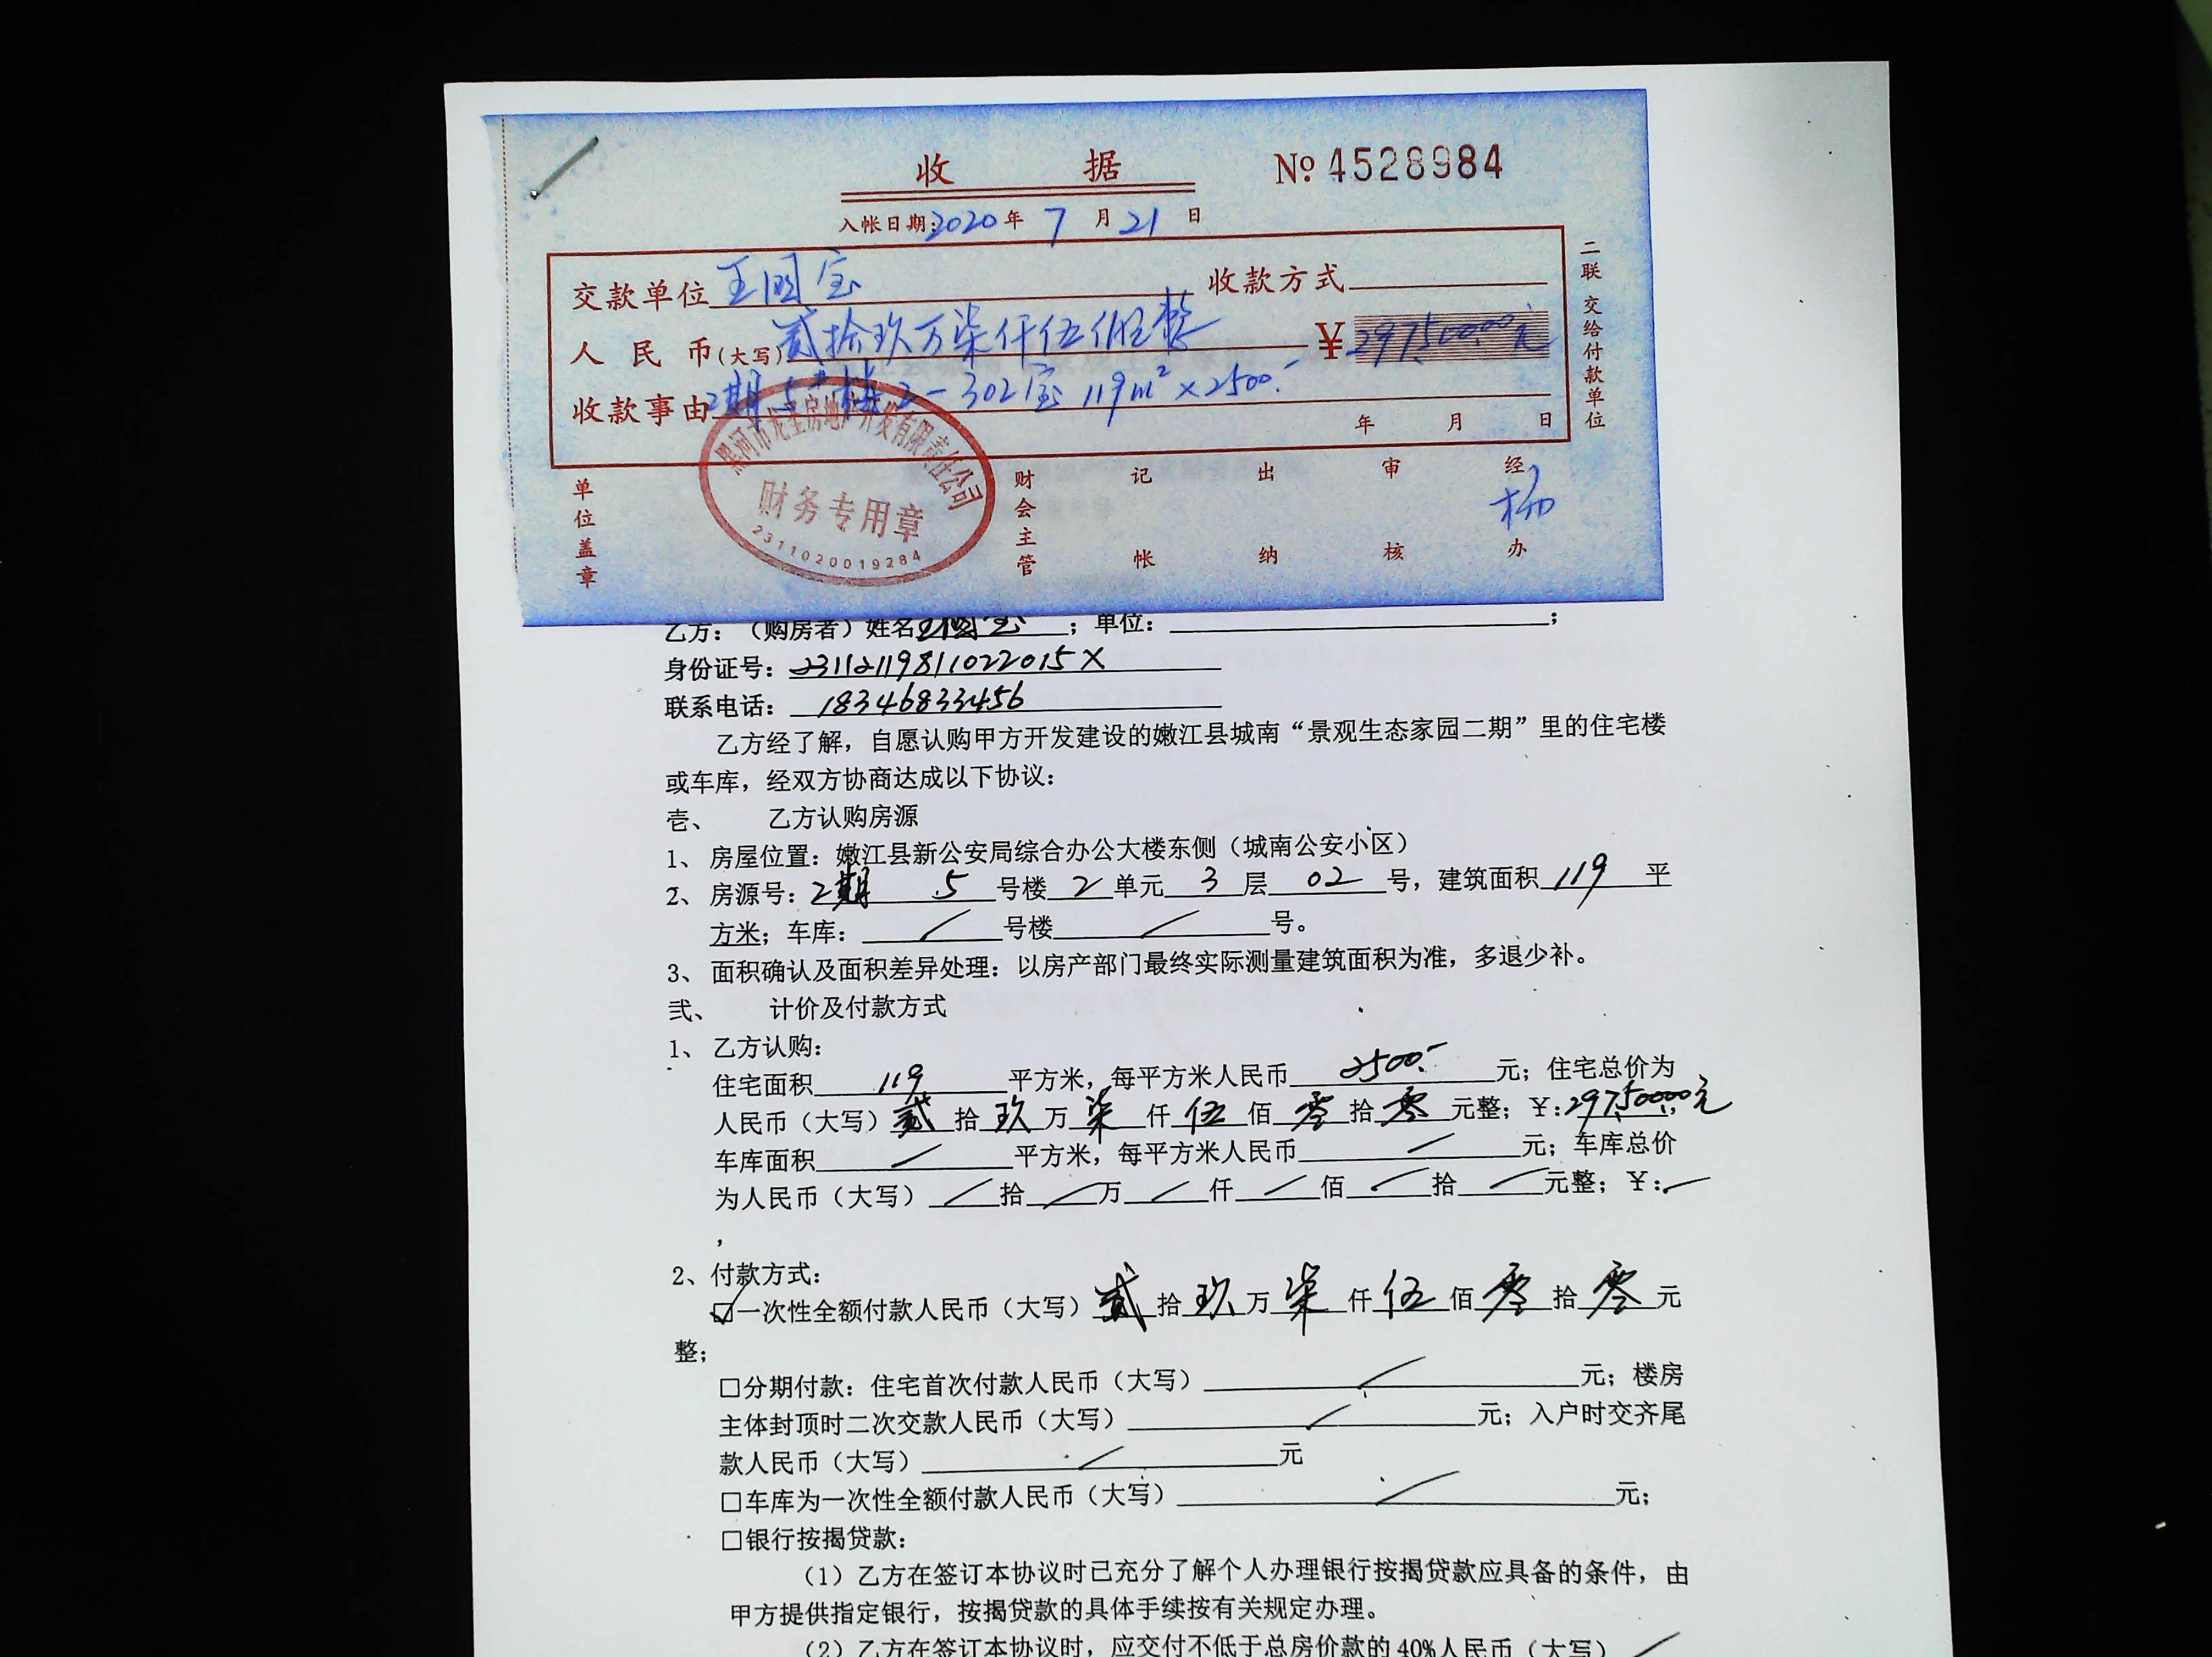 收 据
№ 4528984
入帐日期:2020年 7 月 21 日
交款单位 王国宝 收款方式
人民币(大写) 贰拾玖万柒仟伍佰整 ¥ 297,500.00元
收款事由 2期5#楼2-302室 119m²×2500.-
年 月 日
二联 交给付款单位
单位盖章
黑河市龙圣房地产开发有限责任公司
财务专用章
2311020019284
财会主管
记帐
出纳
审核
经办
杨
乙方：（购房者）姓名王国宝；单位： ；
身份证号：23112119811022015X
联系电话：18346833456
乙方经了解，自愿认购甲方开发建设的嫩江县城南“景观生态家园二期”里的住宅楼
或车库，经双方协商达成以下协议：
壹、 乙方认购房源
1、房屋位置：嫩江县新公安局综合办公大楼东侧（城南公安小区）
2、房源号：2期 5 号楼 2 单元 3 层 02 号，建筑面积 119 平
方米；车库： / 号楼 / 号。
3、面积确认及面积差异处理：以房产部门最终实际测量建筑面积为准，多退少补。
弍、 计价及付款方式
1、乙方认购：
住宅面积 119 平方米，每平方米人民币 2500.- 元；住宅总价为
人民币（大写）贰拾玖万柒仟伍佰零拾零元整；¥:297,500.00元
车库面积 / 平方米，每平方米人民币 / 元；车库总价
为人民币（大写） / 拾 / 万 / 仟 / 佰 / 拾 / 元整；¥: /
，
2、付款方式：
☑一次性全额付款人民币（大写）贰拾玖万柒仟伍佰零拾零元
整；
□分期付款：住宅首次付款人民币（大写） / 元；楼房
主体封顶时二次交款人民币（大写） / 元；入户时交齐尾
款人民币（大写） / 元
□车库为一次性全额付款人民币（大写） / 元；
□银行按揭贷款：
（1）乙方在签订本协议时已充分了解个人办理银行按揭贷款应具备的条件，由
甲方提供指定银行，按揭贷款的具体手续按有关规定办理。
（2）乙方在签订本协议时，应交付不低于总房价款的40%人民币（大写） /